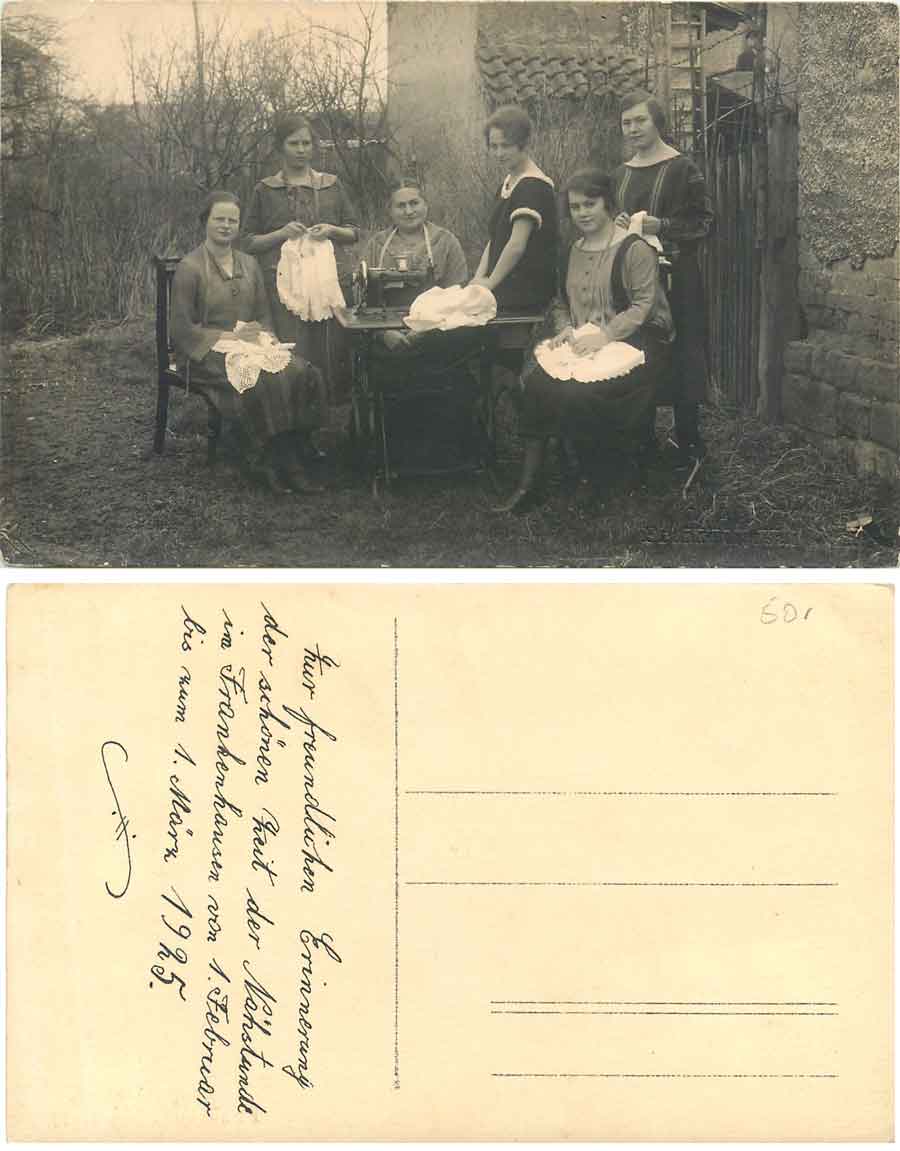 50,
Zur freundlichen Erinnerung
der schönen Zeit der Nähstunde
in Frankenhausen von 1. Februar
bis zum 1. März 1925.